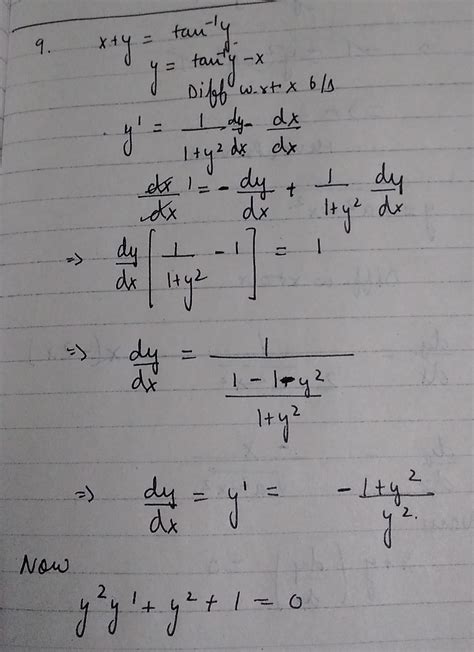 9. x+y = tan⁻¹y
y = tan⁻¹y - x
Diff w.r.t x b/s
y' = 1/(1+y²) dy/dx - dx/dx
dx/dx 1 = - dy/dx + 1/(1+y²) dy/dx
=> dy/dx [1/(1+y²) - 1] = 1
=> dy/dx = 1/((1-1-y²)/(1+y²))
=> dy/dx = y' = - (1+y²)/y².
Now
y²y' + y² + 1 = 0